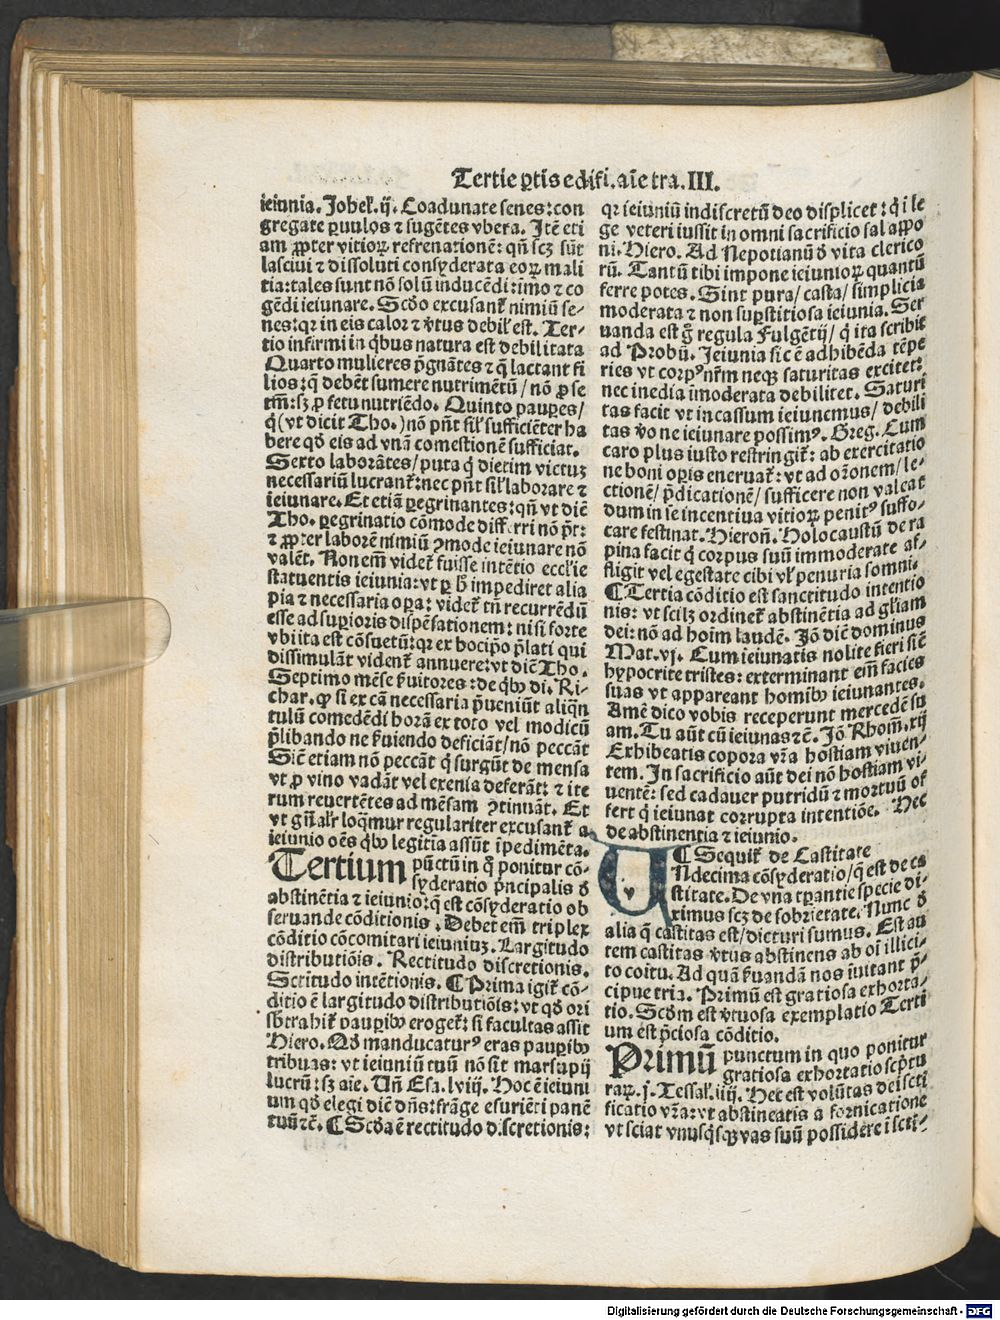 Tertie ꝑtis edifi. aīe tra. III.
ieiunia. Johel'. ij. Coadunate senes: con
gregate ꝑuulos ⁊ sugētes vbera. Itē eti
am ꝓpter vitioꝝ refrenationē: qn̄ scꝫ sūt
lasciui ⁊ dissoluti consyderata eoꝝ mali
tia: tales sunt nō solū inducēdi: imo ⁊ co
gēdi ieiunare. Scd̄o excusant̄ nimiū se-
nes: qr in eis calor ⁊ v̄tus debil' est. Ter-
tio infirmi in qͥbus natura est debilitata
Quarto mulieres p̄gnātes ⁊ q̄ lactant fi
lios: q̄ debēt sumere nutrimētū / nō ꝓ se
tm̄: sꝫ ꝓ fetu nutriēdo. Quinto pauꝑes /
q̄ (vt dicit Tho.) nō pn̄t sil' sufficiēter ha
bere qd̄ eis ad vnā comestionē sufficiat.
Sexto laborātes / puta q̄ dietim victuꝫ
necessariū lucrant̄: nec pn̄t sil' laborare ⁊
ieiunare. Et etiā ꝑegrinantes: qn̄ vt diē
Tho. ꝑegrinatio cōmode differri non pōt:
⁊ ꝓpter laborē nimiū ꝯmode ieiunare nō
valēt. Non em̄ videt̄ fuisse intētio eccl'ie
statuentis ieiunia: vt ꝑ h̄ impediret alia
pia ⁊ necessaria oꝑa: videt̄ tn̄ recurrēdū
esse ad suꝑioris dispēsationem: nisi forte
vbi ita est cōsuetū: qr ex hoc ip̄o p̄lati qui
dissimulāt vident̄ annuere: vt diē Tho.
Septimo mēse ẜuitores: de qͥbꝰ di. Ri-
char. ꝙ si ex cā necessaria p̄ueniūt aliqn̄
tulū comedēdi horā ex toto vel modicū
p̄libando ne ẜuiendo deficiāt / nō peccāt
Sic̄ etiam nō peccāt q̄ surgūt de mensa
vt ꝓ vino vadāt vel exenia deferāt: ⁊ ite
rum reuertētes ad mēsam ꝯtinuāt. Et
vt gn̄al'r loqͣmur regulariter excusant̄ a
ieiunio oēs qͥbꝰ legitīa assūt īpedimēta.
Tertium pūctū in q̄ ponitur cō-
syderatio p̄ncipalis d̄
abstinētia ⁊ ieiunio: q̄ est cōsyderatio ob
seruande cōditionis. Debet em̄ triplex
cōditio cōcomitari ieiuniuꝫ. Largitudo
distributiōis. Rectitudo discretionis.
Sctītudo intētionis. ¶ Prima igit̄ cō-
ditio ē largitudo distributiōis: vt qd̄ ori
sb̄trahit̄ pauꝑibꝰ eroget̄: si facultas assit
Hiero. Qd̄ manducaturꝰ eras pauꝑibꝰ
tribuas: vt ieiuniū tuū nō sit marsupij
lucrū: sꝫ aīe. Un̄ Esa. lviij. Hoc ē ieiuni
um qd̄ elegi diē dn̄s: frāge esuriēti panē
tuū ⁊ē. ¶ Scd̄a ē rectitudo discretionis:
qr ieiuniū indiscretū deo displicet: q̄ i le
ge veteri iussit in omni sacrificio sal appo
ni. Hiero. Ad Nepotianū d̄ vita clerico
rū. Tantū tibi impone ieiunioꝝ quantū
ferre potes. Sint pura / casta / simplicia
moderata ⁊ non suꝑstitiosa ieiunia. Ser
uanda est g̃ regula Fulgētij / q̄ ita scribit
ad Probū. Ieiunia sic ē adhibēda tēpe
ries vt corpꝰ nr̄m neqꝫ saturitas excitet:
nec inedia īmoderata debilitet. Saturi
tas facit vt in cassum ieiunemus / debili
tas v̄o ne ieiunare possimꝰ. Greg. Cum
caro plus iusto restringit̄: ab exercitatio
ne boni oꝑis eneruat̄: vt ad or̄onem / le-
ctionē / p̄dicationē / sufficere non valeat
dum in se incentiua vitioꝝ penitꝰ suffo-
care festinat. Hieron̄. Holocaustū de ra
pina facit q̄ corpus suū immoderate af-
fligit vel egestate cibi vl' penuria somni.
¶ Tertia cōditio est sanctitudo intentio
nis: vt scilꝫ ordinet̄ abstinētia ad gl'iam
dei: nō ad hoīm laudē. Iō diē dominus
Mat. vj. Cum ieiunatis nolite fieri sic̄
hypocrite tristes: exterminant em̄ facies
suas vt appareant homībꝰ ieiunantes.
Amē dico vobis receperunt mercedē su
am. Tu aūt cū ieiunas ⁊ē. Iō Rhom̄. xij
Exhibeatis copora vr̄a hostiam viuen-
tem. In sacrificio aūt dei nō hostiam vi-
uentē: sed cadauer putridū ⁊ mortuū of
fert q̄ ieiunat corrupta intentiōe. Hec
de abstinentia ⁊ ieiunio.
¶ Sequit̄ de Castitate
UNdecima cōsyderatio / q̄ est de ca
stitate. De vna tꝑantie specie di-
ximus scꝫ de sobrietate. Nunc d̄
alia q̄ castitas est / dicturi sumus. Est au
tem castitas v̄tus abstinens ab oī illici-
to coitu. Ad quā ẜuandā nos īuitant p̄-
cipue tria. Primū est gratiosa exhorta-
tio. Scd̄m est v̄tuosa exemplatio Terti
um est p̄ciosa cōditio.
Primū punctum in quo ponitur
gratiosa exhortatio scptu
raꝝ. j. Tessal'. iiij. Hec est volūtas dei scti
ficatio vr̄a: vt abstineatis a fornicatione
vt sciat vnusqͥsqꝫ vas suū possidere ī scti-
Digitalisierung gefördert durch die Deutsche Forschungsgemeinschaft - DFG